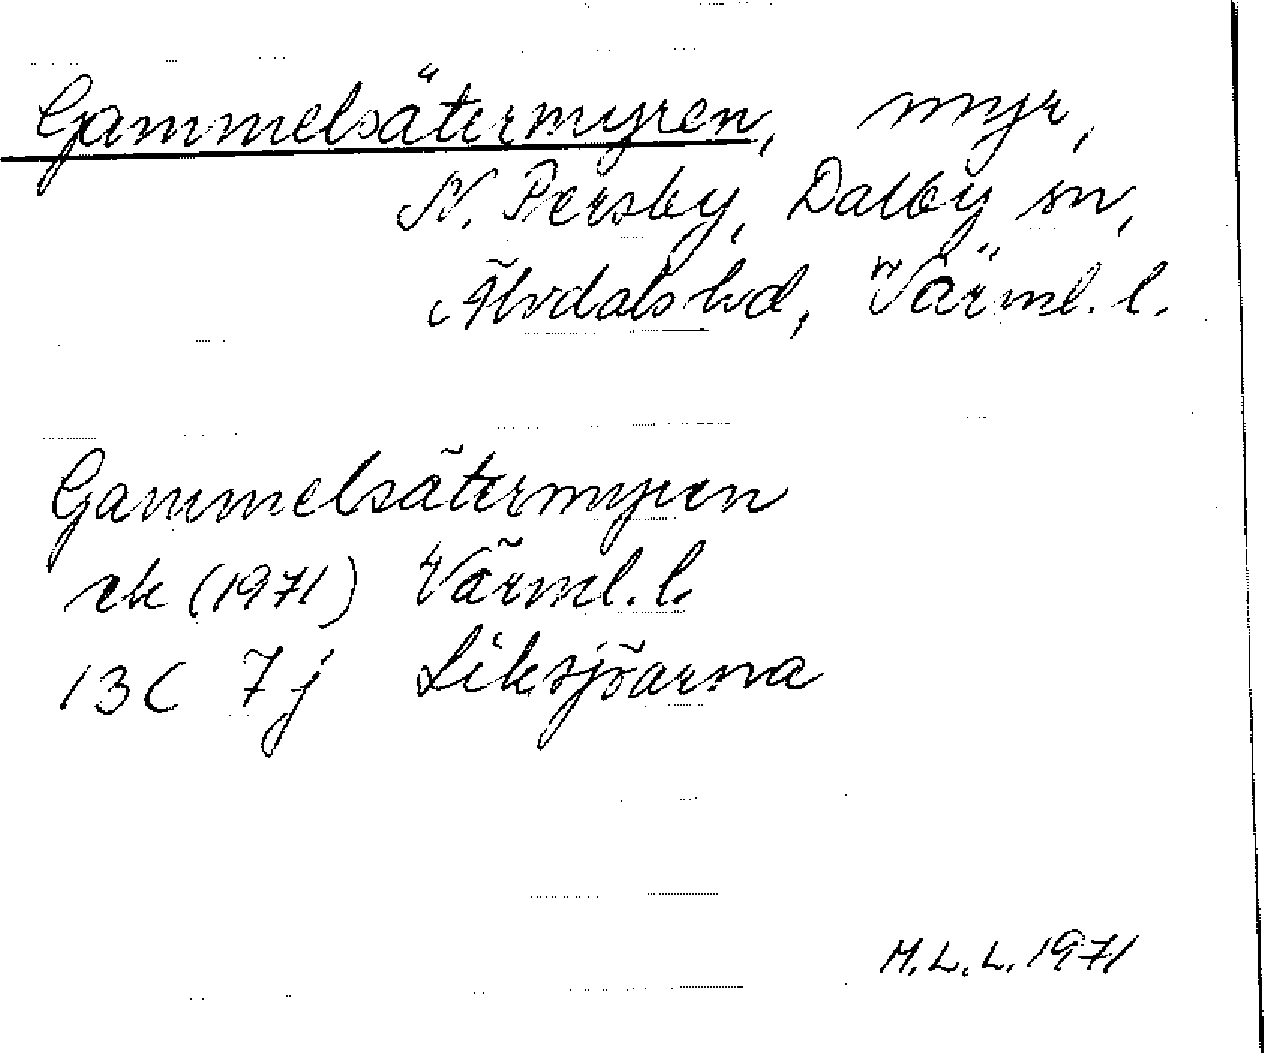 Gammelsätermyren, myr,
N. Persby, Dalby sn,
Älvdals hd, Värml. l.
Gammelsätermyren
ek (1971) Värml. l.
13C 7j Liksjöarna
M.L.L. 1971